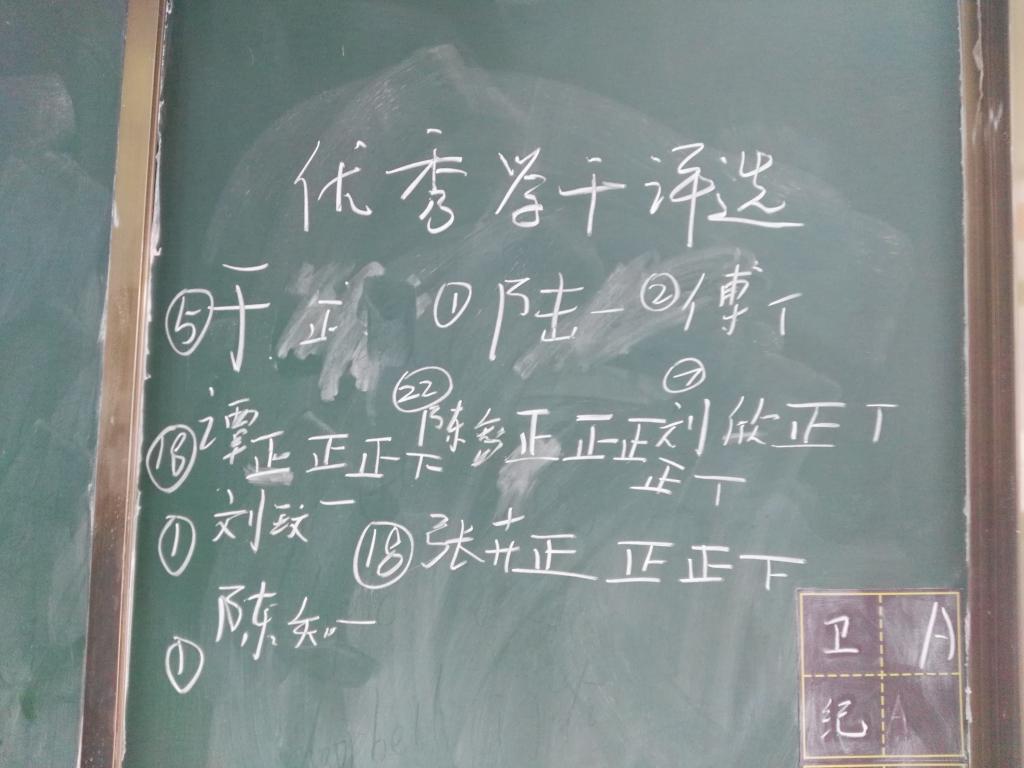 优秀学干评选
⑤于 正 ①陆一 ②傅丅
⑱谭正正正下 ㉒陈 正正正正丅 ⑦刘欣正丅
①刘玟一 ⑱张卉正正正下
①陈知一
卫 A
纪 A